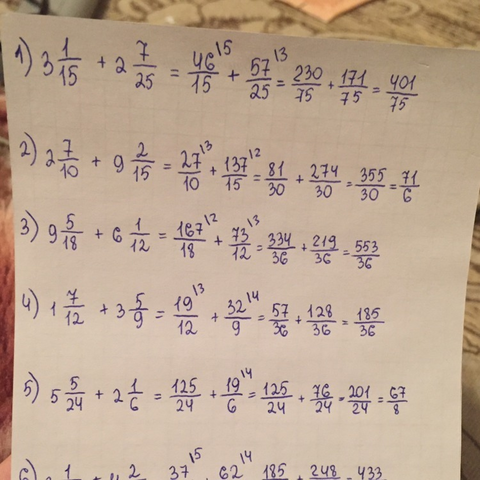 1) 3 1/15 + 2 7/25 = 46/15 \5 + 57/25 \3 = 230/75 + 171/75 = 401/75
2) 2 7/10 + 9 2/15 = 27/10 \3 + 137/15 \2 = 81/30 + 274/30 = 355/30 = 71/6
3) 9 5/18 + 6 1/12 = 167/18 \2 + 73/12 \3 = 334/36 + 219/36 = 553/36
4) 1 7/12 + 3 5/9 = 19/12 \3 + 32/9 \4 = 57/36 + 128/36 = 185/36
5) 5 5/24 + 2 1/6 = 125/24 + 19/6 \4 = 125/24 + 76/24 = 201/24 = 67/8
37 \5 + 62 \4 185 + 248 433